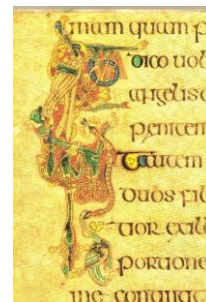 mam quam p
dico uo
angelis
peniten
t autem
duos fil
tior exill
portione
me conting